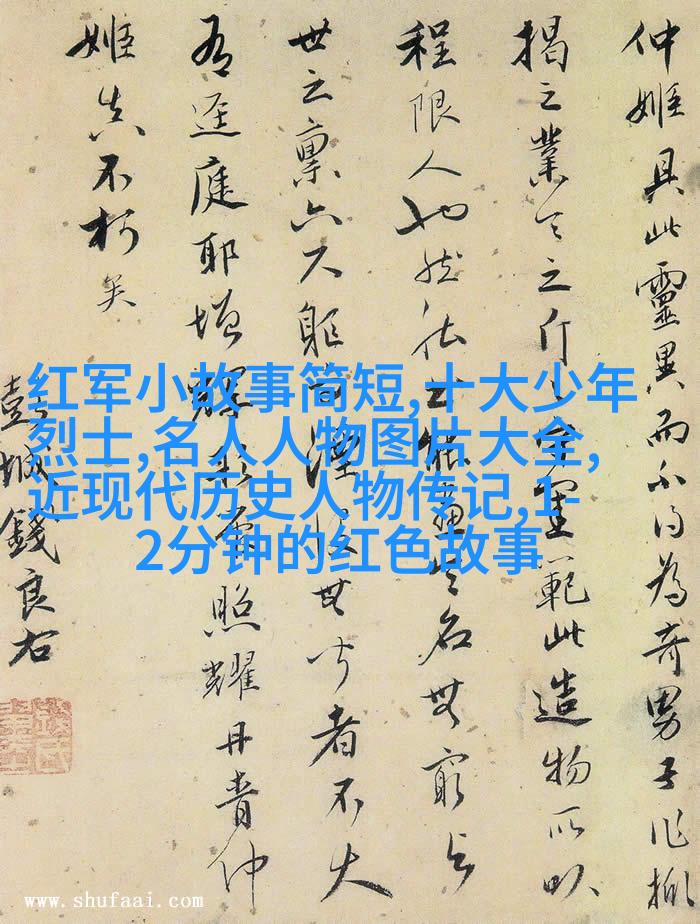 仲姬具此靈異而不得為奇男子作掀
揭之業天之斤範此造物所以
程限人也然名無窮與
世之稟六尺軀沒無聞者不大
有逕庭耶增照耀丹青仲
姬真不朽矣
錢良右
红军小故事简短,十大少年
烈士,名人人物图片大全,
近现代历史人物传记,1-
2分钟的红色故事
www.shufaai.com